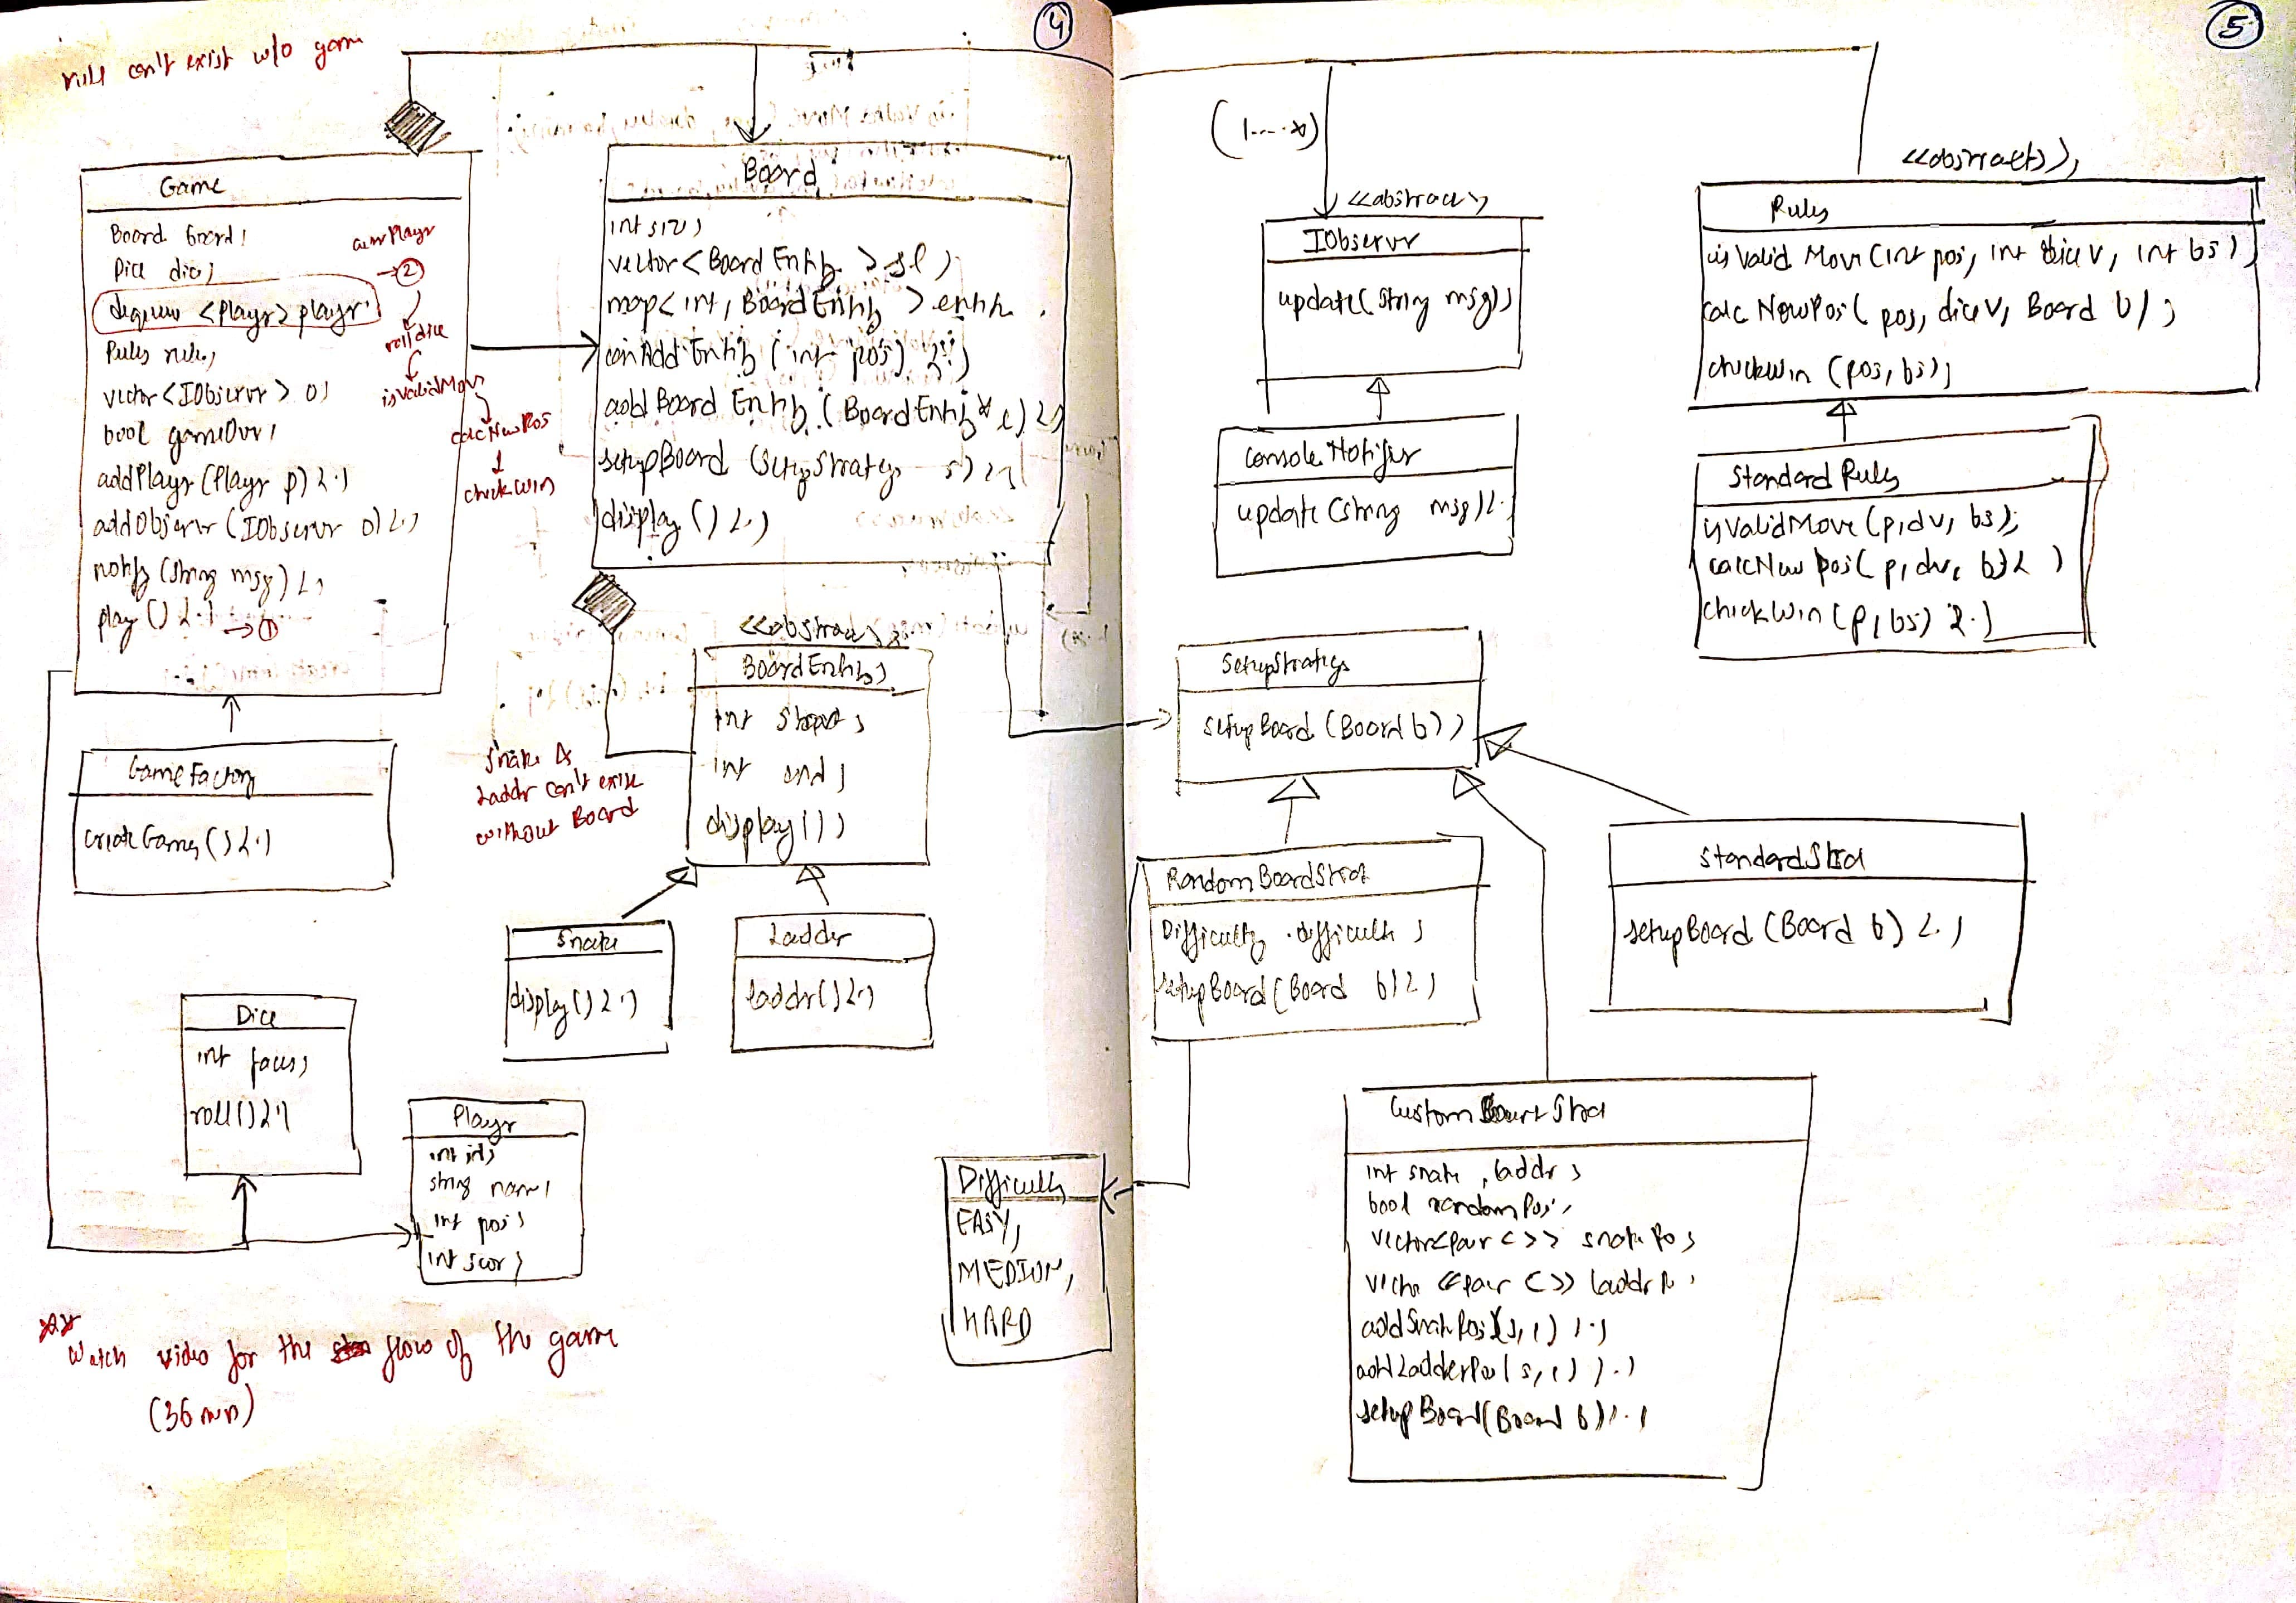 4
rule can't exist w/o game
Game
Board board;
Dice dice;
deque <Player> player;
Rules rules;
vector<IObserver> o;
bool gameOver;
addPlayer(Player p){.}
addObserver(IObserver o){.}
notify(string msg){.}
play(){.} → ①
currPlayer
→ ②
roll dice
isValidMove
calcNewPos
checkWin
Board
int size;
vector<BoardEntity> sl;
map<int, BoardEntity>
canAddEntity(int pos)
addBoardEntity(BoardEntity* e){.}
setupBoard(SetupStrategy s){.}
display(){.}
GameFactory
createGame(){.}
<<abstract>>
BoardEntity
int start;
int end;
display();
Snake & 
Ladder can't exist
without Board
Snake
display(){.}
Ladder
ladder(){.}
Dice
int faces;
roll(){.}
Player
int id;
string name;
int pos;
int score;
Watch video for the flow of the game
(36 min)
5
(1....*)
<<abstract>>
IObserver
update(string msg);
ConsoleNotifier
update(string msg){.
<<abstract>>
Rules
isValidMove(int pos, int diceV, int bs);
calcNewPos(pos, diceV, Board b);
checkWin(pos, bs);
StandardRules
isValidMove(p, dv, bs);
calcNewPos(p, dv, b){ }
checkWin(p, bs){.}
SetupStrategy
setupBoard(Board b);
RandomBoardStrat
Difficulty difficulty;
setupBoard(Board b){.}
StandardStrat
setupBoard(Board b){.}
Difficulty
EASY,
MEDIUM,
HARD
Custom Strat
int snake, ladder;
bool randomPos;
vector<pair<>> snakePos
vector<pair<>> ladderPos
addSnakePos(s, e){.}
addLadderPos(s, e){.}
setupBoard(Board b){.}